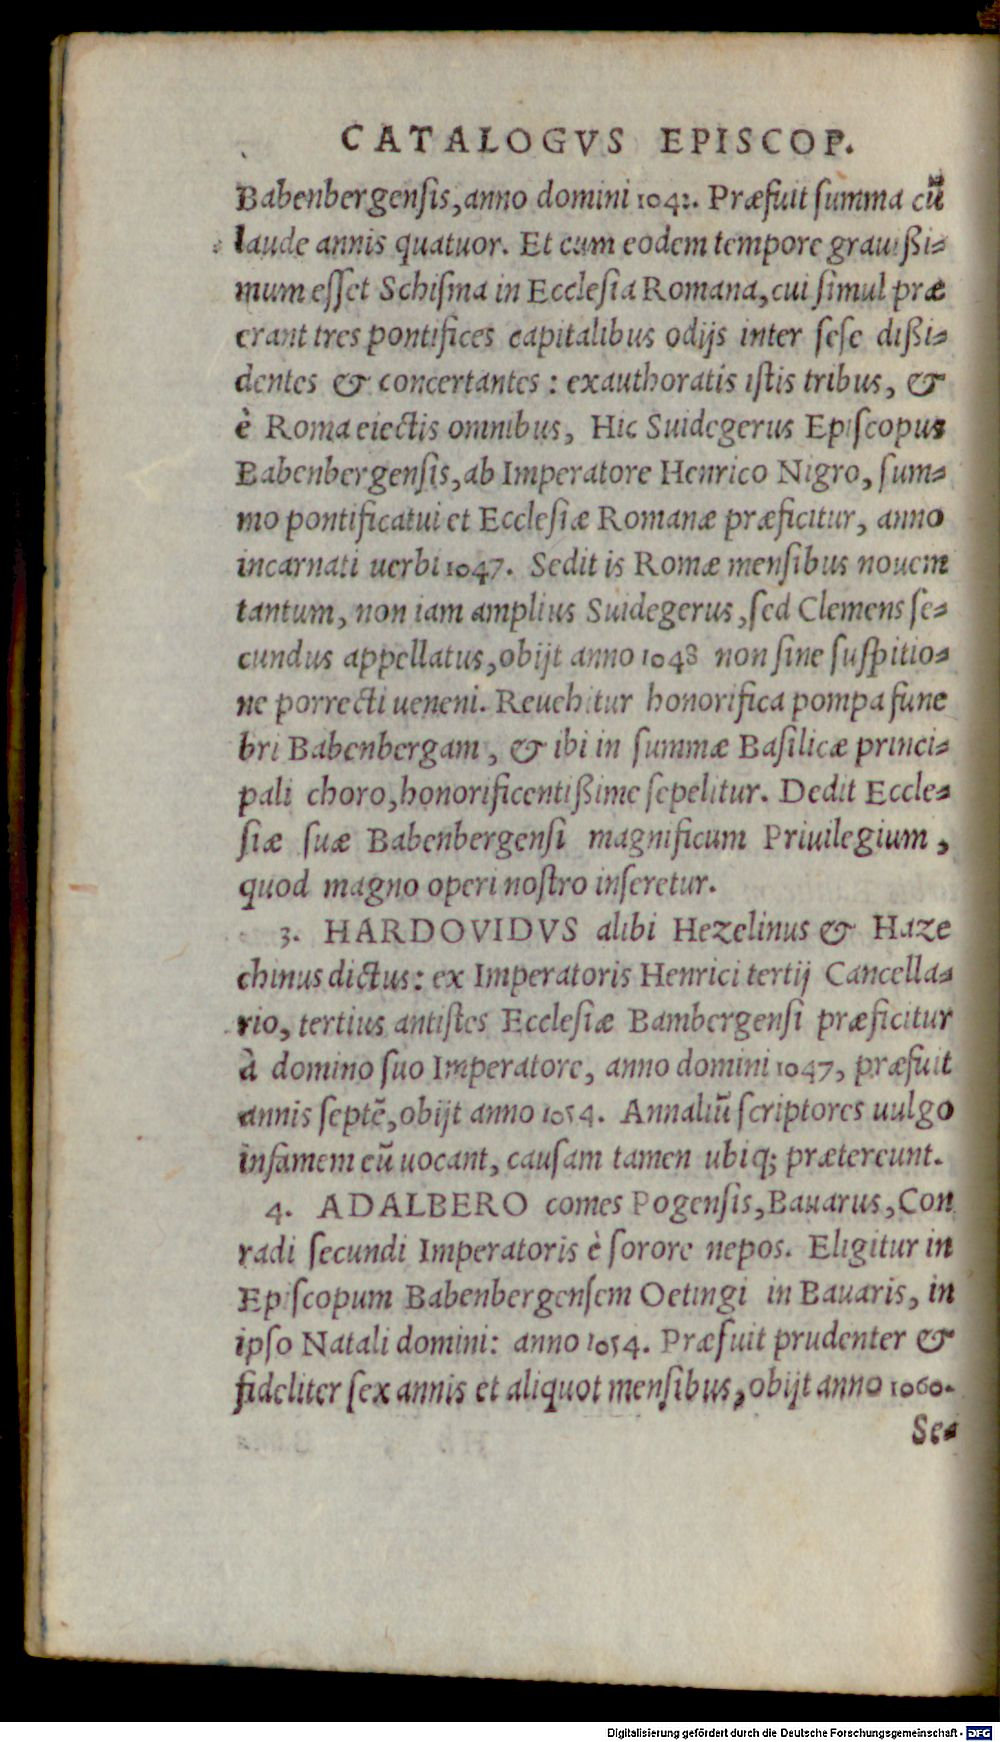 CATALOGVS EPISCOP.
Babenbergensis, anno domini 1042. Præfuit summa cũ
laude annis quatuor. Et cum eodem tempore grauißi-
mum esset Schisma in Ecclesia Romana, cui simul præ
erant tres pontifices capitalibus odijs inter sese dißi-
dentes & concertantes: exauthoratis istis tribus, &
è Roma eiectis omnibus, Hic Suidegerus Episcopus
Babenbergensis, ab Imperatore Henrico Nigro, sum-
mo pontificatui et Ecclesiæ Romanæ præficitur, anno
incarnati uerbi 1047. Sedit is Romæ mensibus nouem
tantum, non iam amplius Suidegerus, sed Clemens se-
cundus appellatus, obijt anno 1048 non sine suspitio-
ne porrecti ueneni. Reuehitur honorifica pompa fune
bri Babenbergam, & ibi in summæ Basilicæ princi-
pali choro, honorificentißime sepelitur. Dedit Eccle-
siæ suæ Babenbergensi magnificum Priuilegium,
quod magno operi nostro inseretur.
3. HARDOVIDVS alibi Hezelinus & Haze
chinus dictus: ex Imperatoris Henrici tertij Cancella-
rio, tertius antistes Ecclesiæ Bambergensi præficitur
à domino suo Imperatore, anno domini 1047, præfuit
annis septẽ, obijt anno 1054. Annaliũ scriptores uulgo
infamem eũ uocant, causam tamen ubiq; prætereunt.
4. ADALBERO comes Pogensis, Bauarus, Con
radi secundi Imperatoris è sorore nepos. Eligitur in
Episcopum Babenbergensem Oetingi in Bauaris, in
ipso Natali domini: anno 1054. Præfuit prudenter &
fideliter sex annis et aliquot mensibus, obijt anno 1060.
Se-
Digitalisierung gefördert durch die Deutsche Forschungsgemeinschaft - DFG